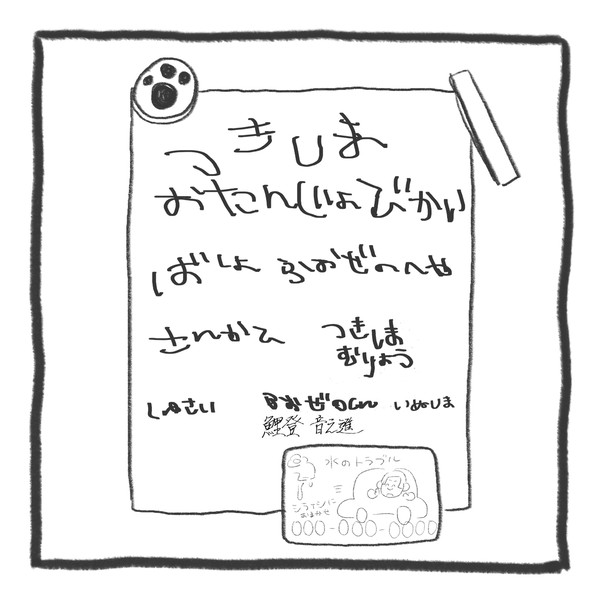 つきしま
おたんじょびかい
ばしょ ふおぜのへや
さんかひ つきしま
むりょう
しゅさい ふおぜのじん いぬしま
鯉登 音之進
水のトラブル
シライシに
おまかせ
000-000-0000